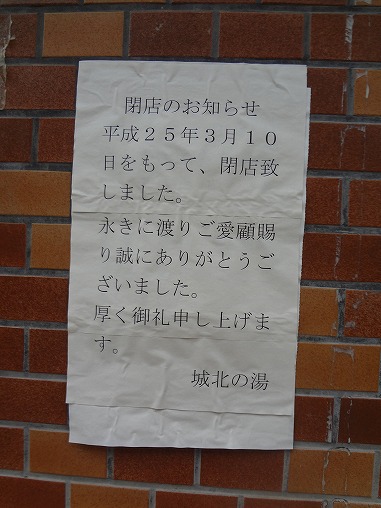 閉店のお知らせ
平成２５年３月１０
日をもって、閉店致
しました。
永きに渡りご愛顧賜
り誠にありがとうご
ざいました。
厚く御礼申し上げま
す。
城北の湯